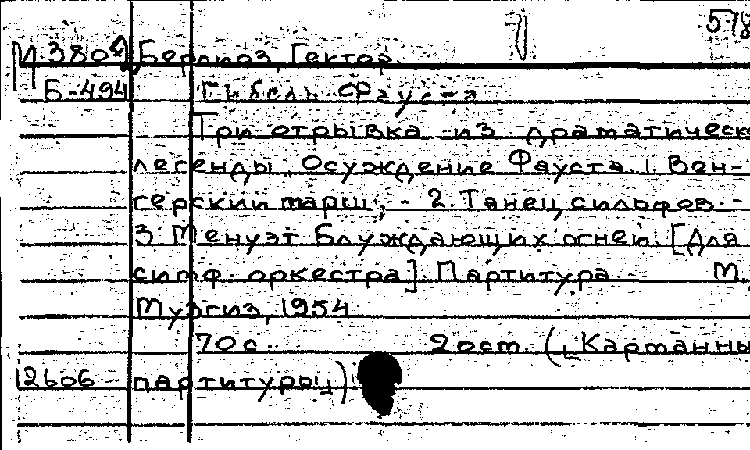 578
М 3809 Берлиоз, Гектор.
Б-494 Гибель Фауста
Три отрывка из драматическ
легенды „Осуждение Фауста. 1. Вен-
герский марш; - 2. Танец сильфов. -
3. Менуэт Блуждающих огней. [Для
симф. оркестра]. Партитура. М.
Музгиз, 1954
70 с. 2 ост. („Карманны
12606 партитуры")